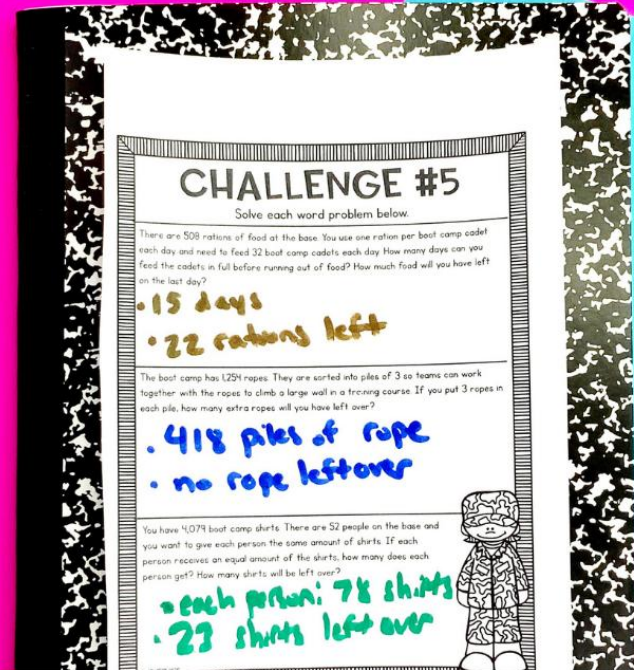 CHALLENGE #5
Solve each word problem below.
There are 508 rations of food at the base. You use one ration per boot camp cadet
each day and need to feed 32 boot camp cadets each day. How many days can you
feed the cadets in full before running out of food? How much food will you have left
on the last day?
•15 days
•22 rations left
The boot camp has 1,254 ropes. They are sorted into piles of 3 so teams can work
together with the ropes to climb a large wall in a training course. If you put 3 ropes in
each pile, how many extra ropes will you have left over?
• 418 piles of rope
• no rope leftover
You have 4,079 boot camp shirts. There are 52 people on the base and
you want to give each person the same amount of shirts. If each
person receives an equal amount of the shirts, how many does each
person get? How many shirts will be left over?
•each person: 78 shirts
•23 shirts left over